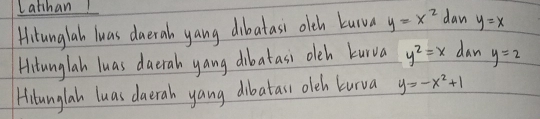 Latihan 1
Hitunglah luas daerah yang dibatasi oleh kurva y = x² dan y = x
Hitunglah luas daerah yang dibatasi oleh kurva y² = x dan y = 2
Hitunglah luas daerah yang dibatasi oleh kurva y = -x² + 1